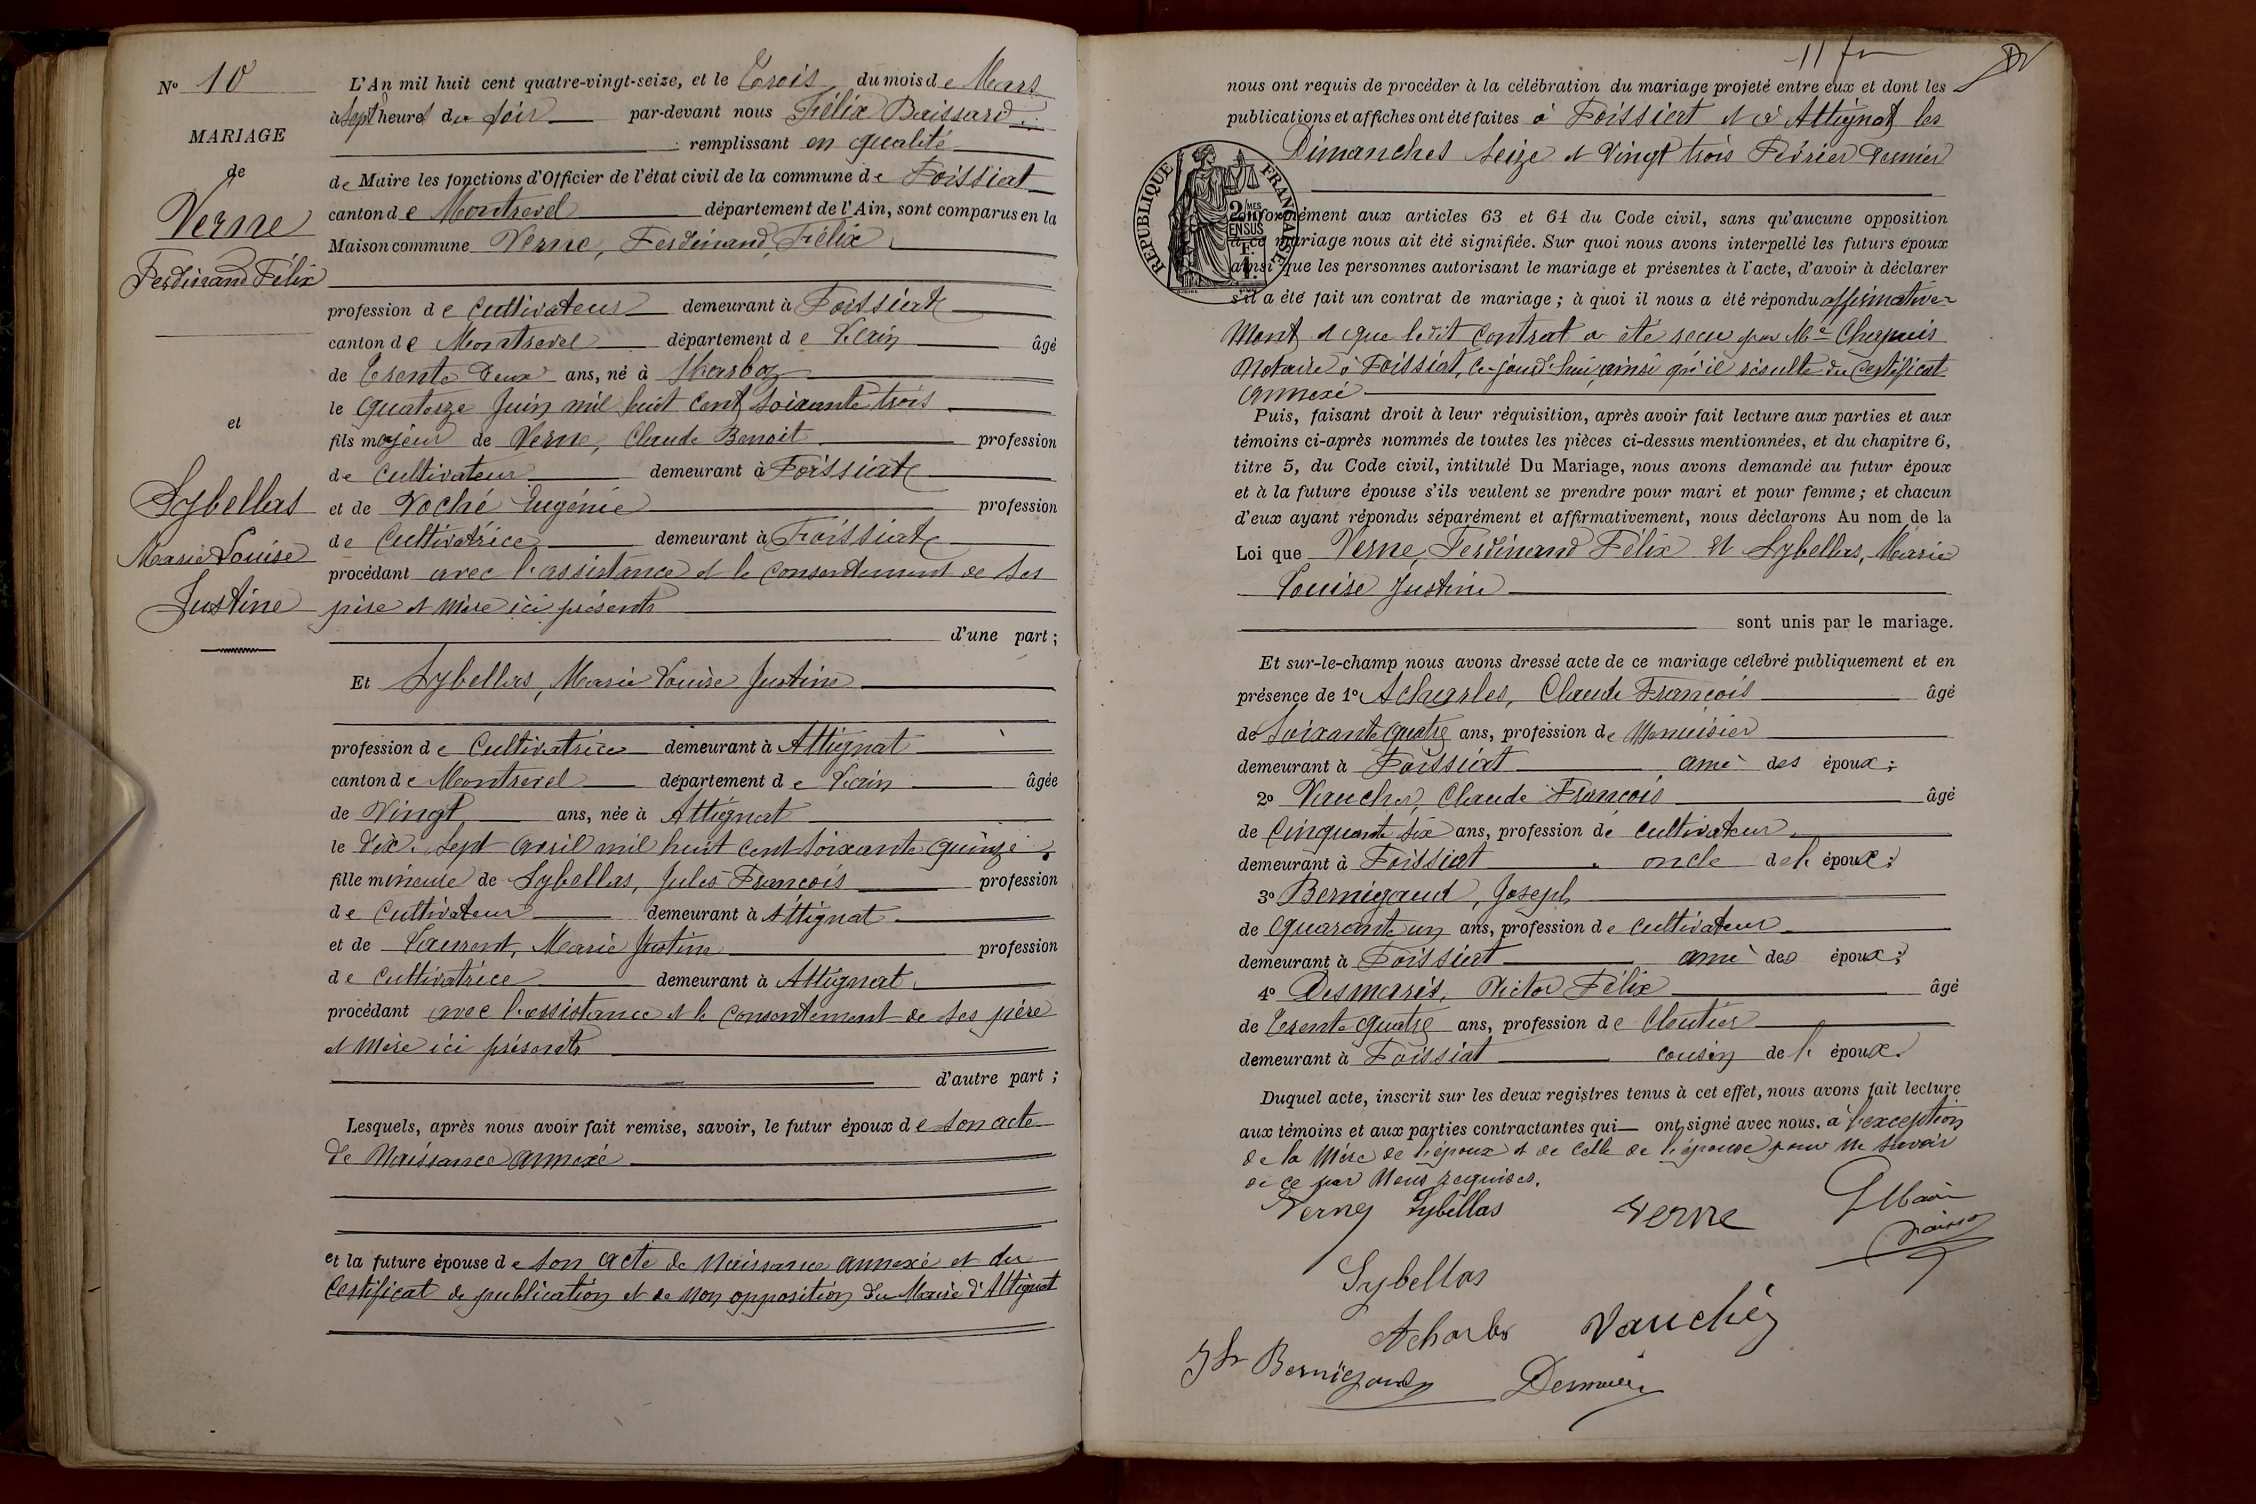 N° 10
MARIAGE
de
Verne
Ferdinand Félix
et
Sybellas
Marie Louise
Justine
L'An mil huit cent quatre-vingt-seize, et le Trois du mois de Mars
à sept heures du soir par-devant nous Félix Baissard
remplissant en qualité
de Maire les fonctions d'Officier de l'état civil de la commune de Foissiat
canton de Montrevel département de l'Ain, sont comparus en la
Maison commune Verne, Ferdinand Félix
profession de Cultivateur demeurant à Foissiat
canton de Montrevel département de l'Ain âgé
de Trente deux ans, né à Marboz
le quatorze Juin mil huit cent soixante trois
fils majeur de Verne, Claude Benoit profession
de Cultivateur demeurant à Foissiat
et de Voché Eugénie profession
de Cultivatrice demeurant à Foissiat
procédant avec l'assistance et le consentement de ses
père et mère ici présents
d'une part ;
Et Sybellas, Marie Louise Justine
profession de Cultivatrice demeurant à Attignat
canton de Montrevel département de l'ain âgée
de Vingt ans, née à Attignat
le dix sept avril mil huit cent soixante quinze
fille mineure de Sybellas, Jules François profession
de Cultivateur demeurant à Attignat
et de Laurent, Marie Justine profession
de Cultivatrice demeurant à Attignat
procédant avec l'assistance et le consentement de ses père
et mère ici présents
d'autre part ;
Lesquels, après nous avoir fait remise, savoir, le futur époux de son acte
de Naissance annexé
et la future épouse de son acte de Naissance annexé et du
Certificat de publication et de non opposition du Maire d'Attignat
nous ont requis de procéder à la célébration du mariage projeté entre eux et dont les
publications et affiches ont été faites à Foissiat et à Attignat les
Dimanches seize et Vingt trois Février dernier
REPUBLIQUE FRANÇAISE
2/MES 1/2 EN SUS
F.
conformément aux articles 63 et 64 du Code civil, sans qu'aucune opposition
à ce mariage nous ait été signifiée. Sur quoi nous avons interpellé les futurs époux
ainsi que les personnes autorisant le mariage et présentes à l'acte, d'avoir à déclarer
s'il a été fait un contrat de mariage ; à quoi il nous a été répondu affirmative-
ment et que ledit Contrat a été reçu par Me Chapuis
Notaire à Foissiat, ce jourd'hui, ainsi qu'il résulte du Certificat
annexé
Puis, faisant droit à leur réquisition, après avoir fait lecture aux parties et aux
témoins ci-après nommés de toutes les pièces ci-dessus mentionnées, et du chapitre 6,
titre 5, du Code civil, intitulé Du Mariage, nous avons demandé au futur époux
et à la future épouse s'ils veulent se prendre pour mari et pour femme ; et chacun
d'eux ayant répondu séparément et affirmativement, nous déclarons Au nom de la
Loi que Verne, Ferdinand Félix et Sybellas, Marie
Louise Justine
sont unis par le mariage.
Et sur-le-champ nous avons dressé acte de ce mariage célébré publiquement et en
présence de 1° Acharles, Claude François âgé
de soixante quatre ans, profession de Menuisier
demeurant à Foissiat ami des époux ;
2° Vaucher, Claude François âgé
de Cinquante six ans, profession de cultivateur
demeurant à Foissiat oncle de l'époux ;
3° Bernigaud, Joseph
de quarante un ans, profession de cultivateur
demeurant à Foissiat ami des époux ;
4° Desmaris, Victor Félix âgé
de Trente quatre ans, profession de Cloutier
demeurant à Foissiat cousin de l'époux.
Duquel acte, inscrit sur les deux registres tenus à cet effet, nous avons fait lecture
aux témoins et aux parties contractantes qui ont signé avec nous. à l'exception
de la Mère de l'époux et de celle de l'épouse pour ne savoir
de ce par Nous requises.
Verne Sybellas Verne
Sybellas
Acharles Vauché
Jh Bernigaud